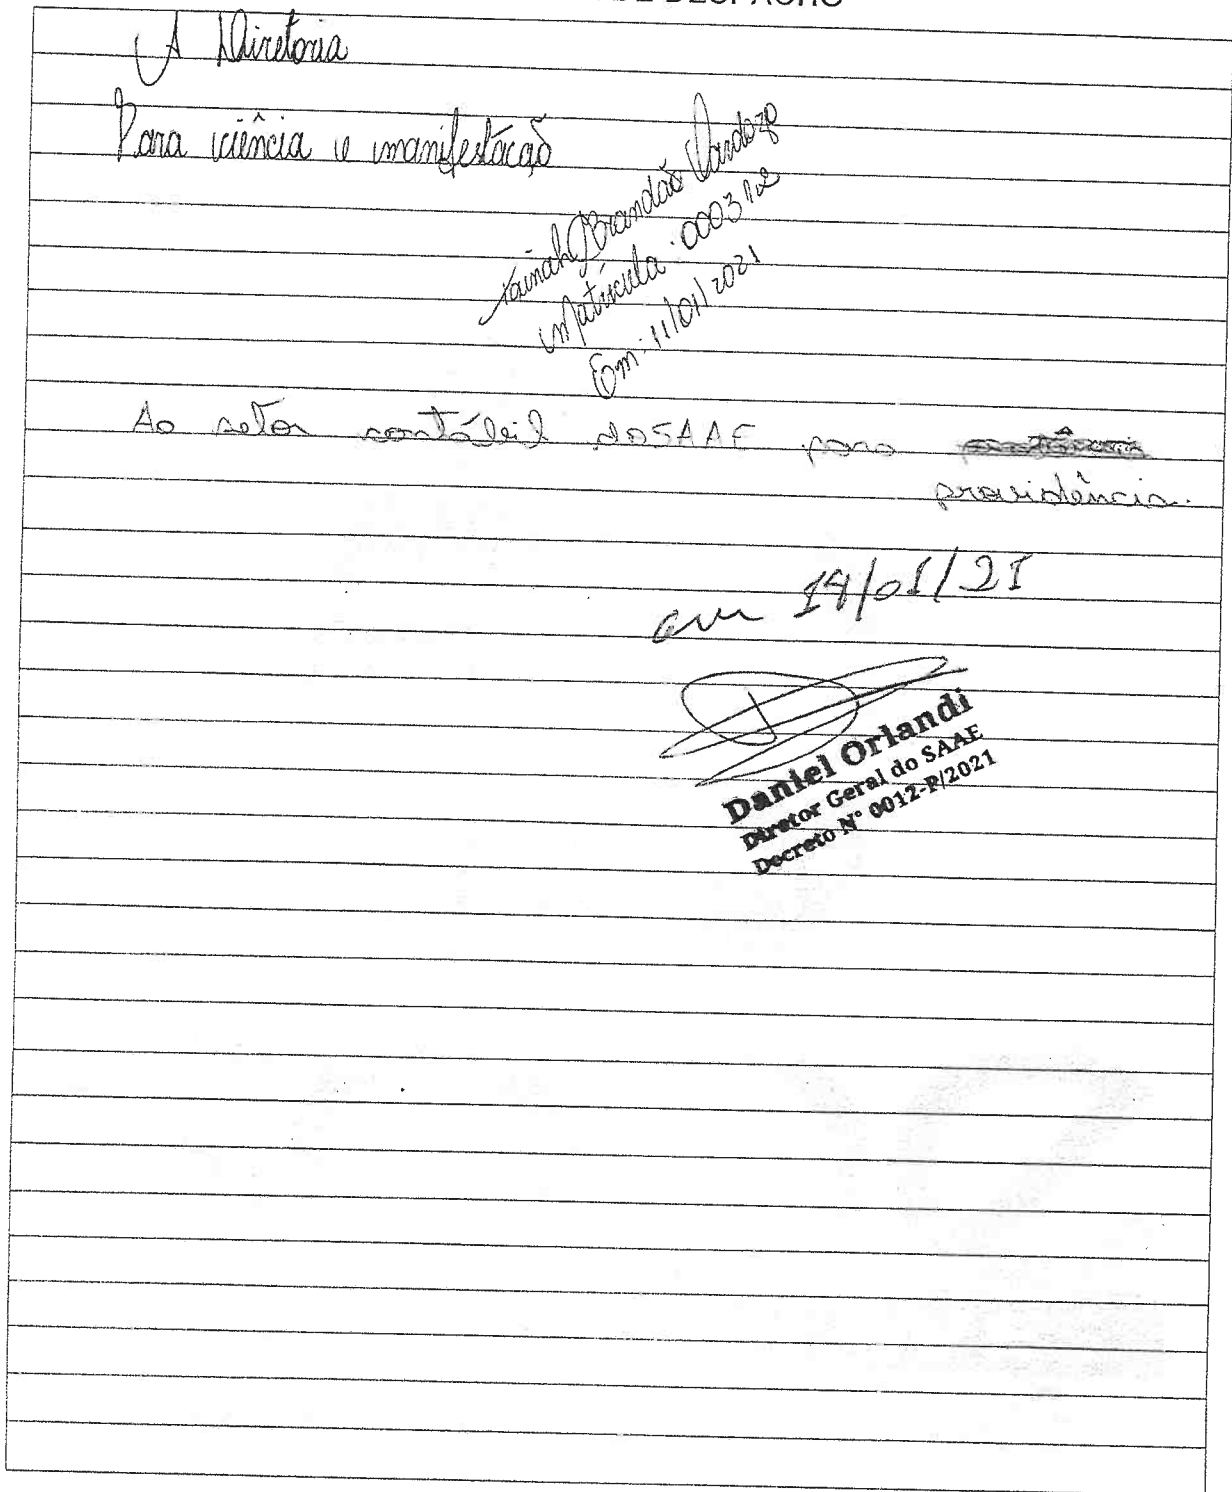 DE DESPACHO
A Diretoria
Para ciência e manifestação
Tainah Brandão Cardozo
Matrícula: 000312
Em: 11/01/2021
Ao setor contábil do SAAE para
providência.
em 14/01/21
Daniel Orlandi
Diretor Geral do SAAE
Decreto N° 0012-P/2021